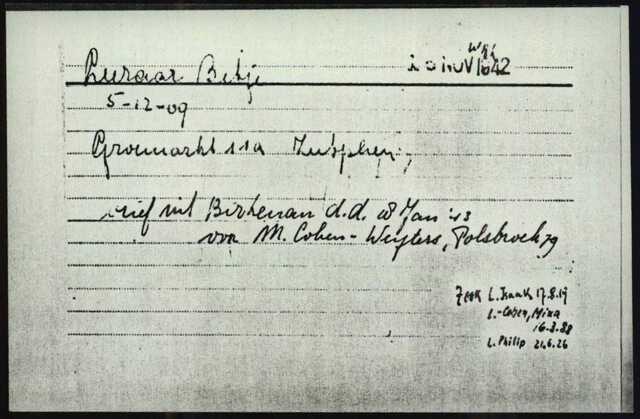 Luraar Betje
WK
20 NOV 1942
5-12-09
Groenmarkt 11a Zutphen,
brief uit Birkenau d.d. Jan '43
voor M. Cohen-Weijters, Polsbroek 79
Zoek L. Isaak 17.8.19
L.-Cohen, Mina
16.3.88
L. Philip 21.6.26